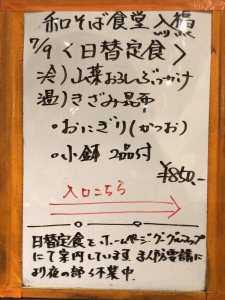 和そば食堂 入福
7/9 〈日替定食〉
冷) 山菜おろしぶっかけ
温) きざみ昆布
・おにぎり(かつお)
・小鉢 2品付
¥850.-
入口こちら
日替定食を、ホームページ、グーグルマップ
にて案内しています。
り夜の部 休業中